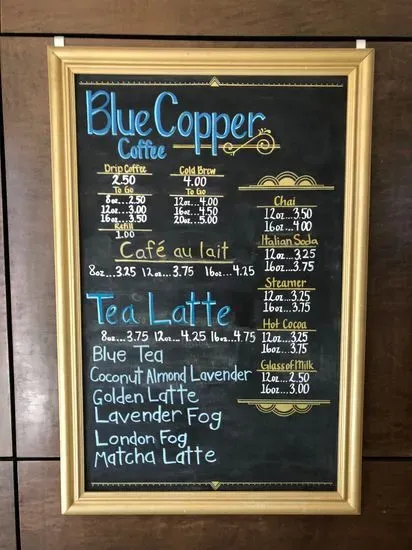 Blue Copper
Coffee
Drip Coffee
2.50
To Go
8oz...2.50
12oz...3.00
16oz...3.50
Refill
1.00
Cold Brew
4.00
To Go
12oz...4.00
16oz...4.50
20oz...5.00
Café au lait
8oz...3.25 12oz...3.75 16oz...4.25
Tea Latte
8oz...3.75 12oz...4.25 16oz...4.75
Blue Tea
Coconut Almond Lavender
Golden Latte
Lavender Fog
London Fog
Matcha Latte
Chai
12oz...3.50
16oz...4.00
Italian Soda
12oz...3.25
16oz...3.75
Steamer
12oz...3.25
16oz...3.75
Hot Cocoa
12oz...3.25
16oz...3.75
Glass of Milk
12oz...2.50
16oz...3.00